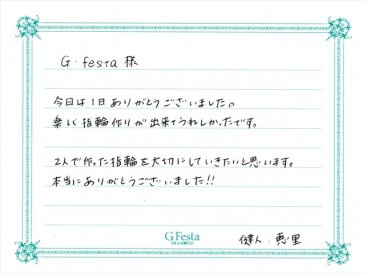 G.festa 様
今日は1日ありがとうございました。
楽しく指輪作りが出来てうれしかったです。
2人で作った指輪を大切にしていきたいと思います。
本当にありがとうございました!!
G.Festa
健人 恵里